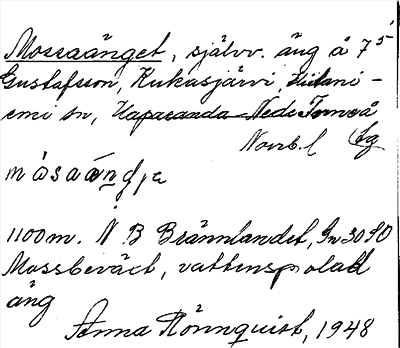 Mossaänget, självv. äng å 7⁵
Gustafsson, Kukasjärvi, Hietani-
emi sn, Haparanda-Neds Torneå
Norrb. l
måsaäŋjə
1100 m. N B Brännlandet, Gn 30 SO
Mossbeväxt, vattenspolad
äng
Anna Rönnquist, 1948